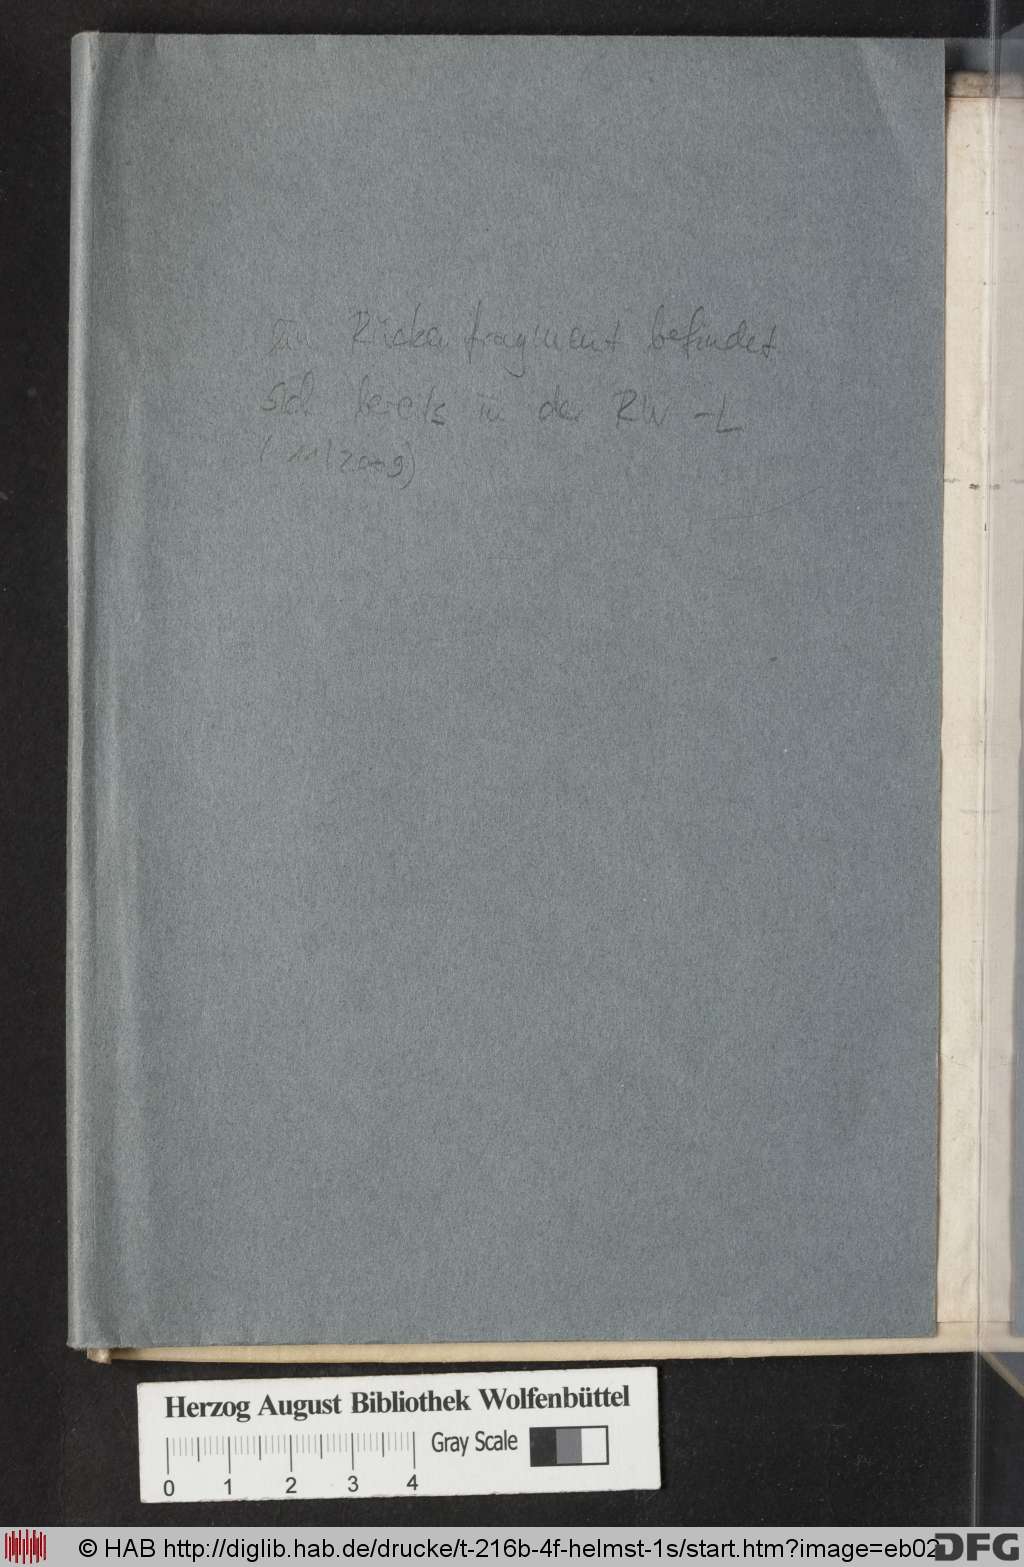 Ein Rückenfragment befindet
sich bereits in der RW-L
(11/2009)
Herzog August Bibliothek Wolfenbüttel
Gray Scale
0 1 2 3 4
© HAB http://diglib.hab.de/drucke/t-216b-4f-helmst-1s/start.htm?image=eb02
DFG